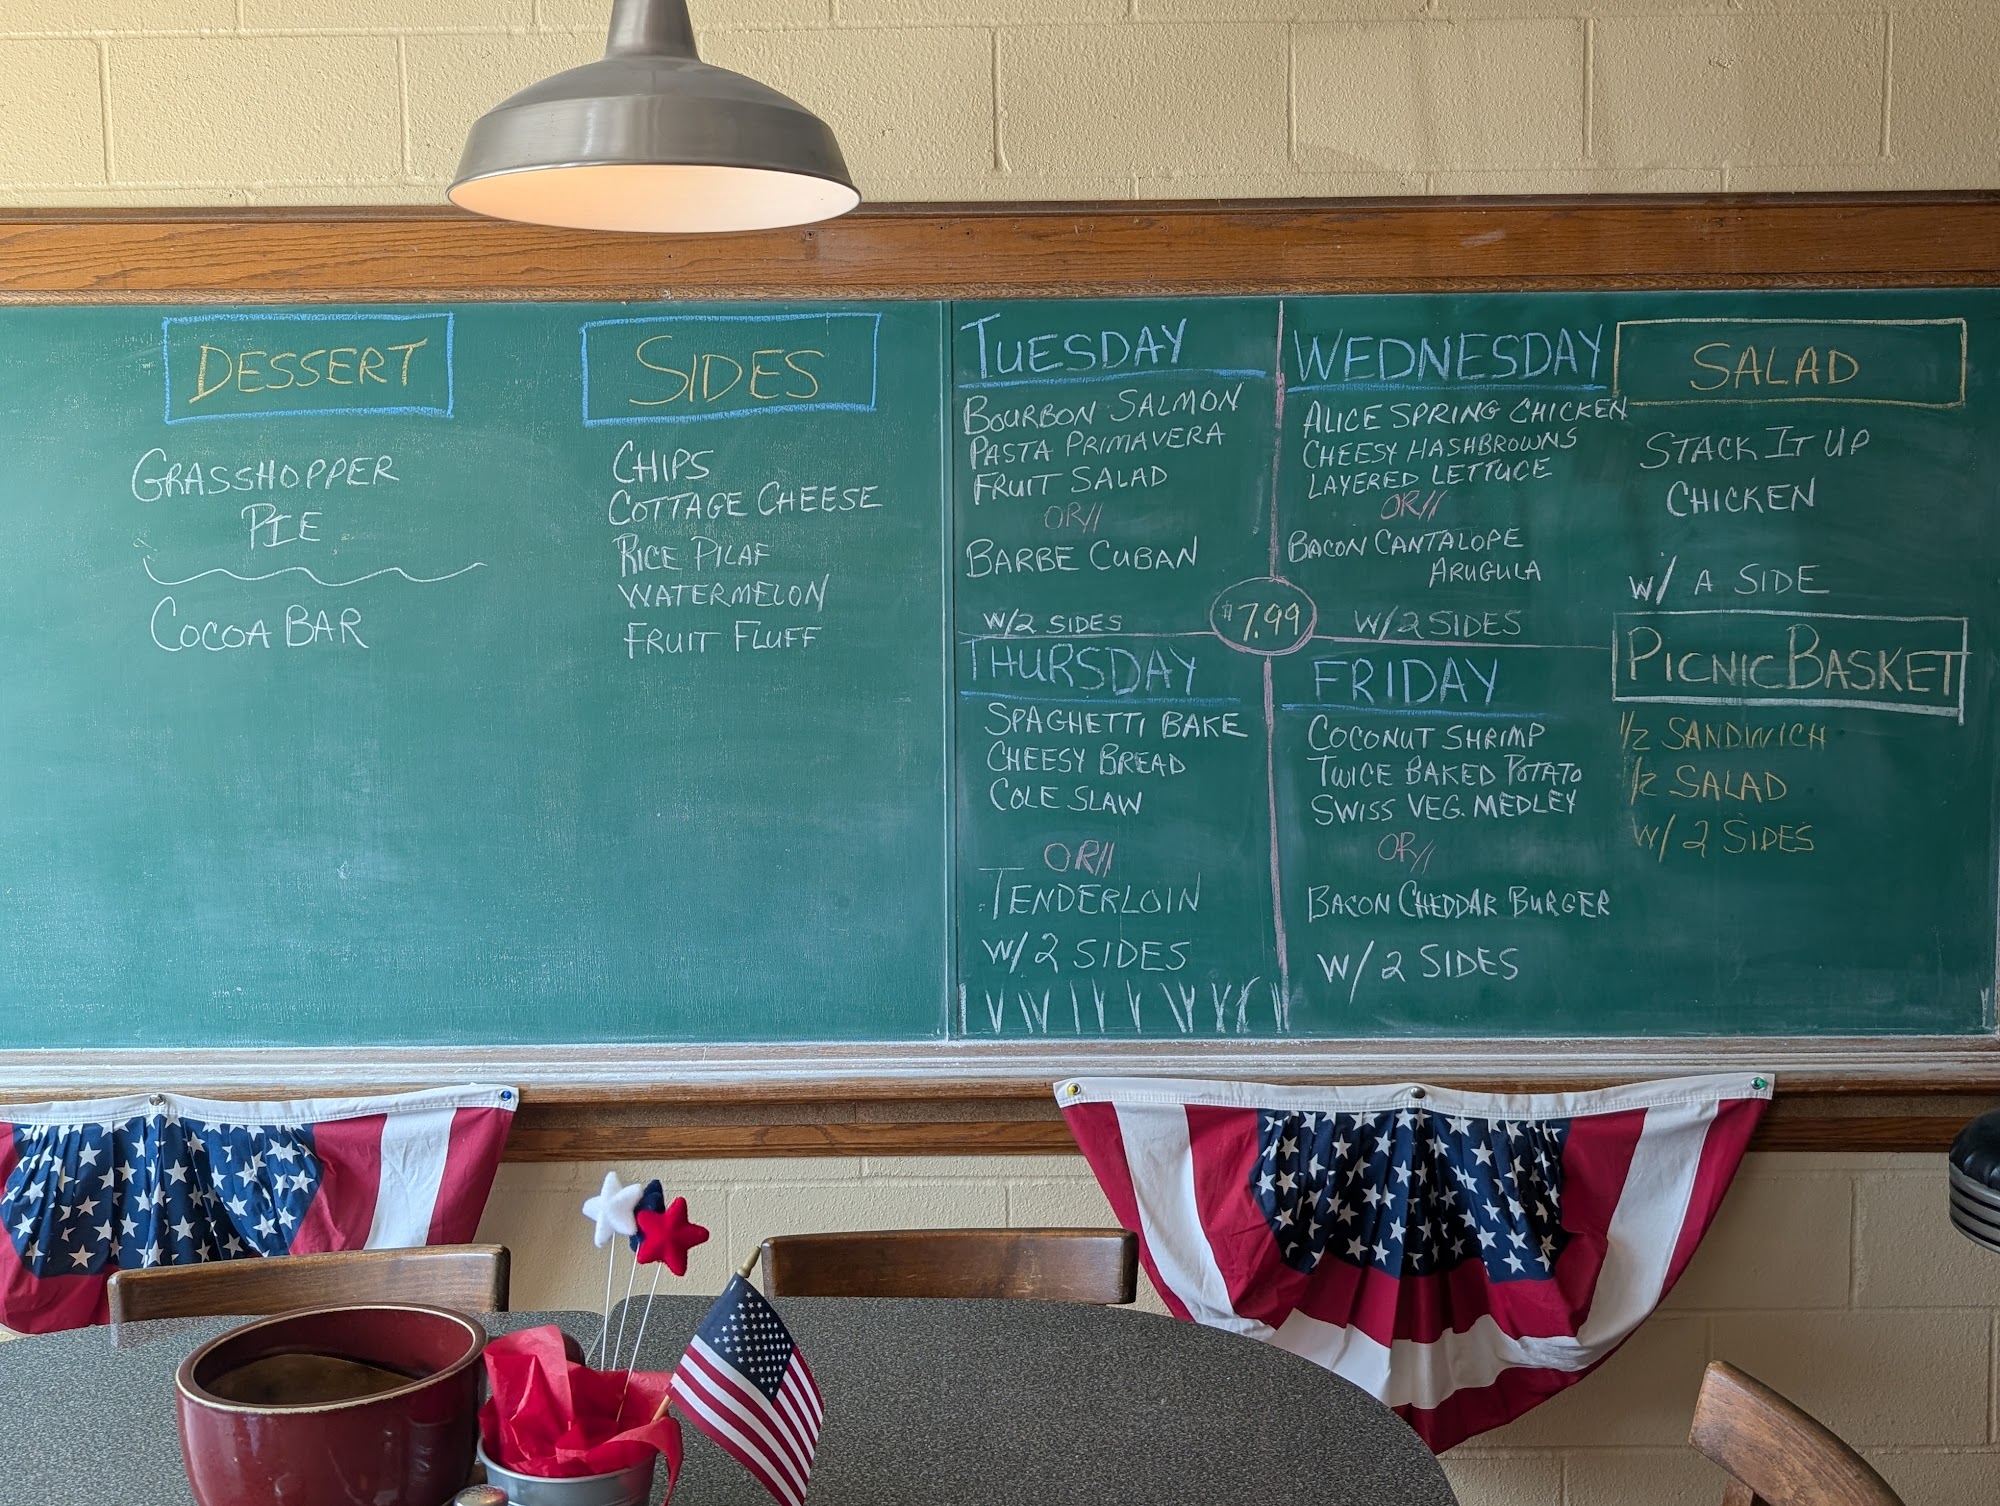 DESSERT
GRASSHOPPER
PIE
COCOA BAR
SIDES
CHIPS
COTTAGE CHEESE
RICE PILAF
WATERMELON
FRUIT FLUFF
TUESDAY
BOURBON SALMON
PASTA PRIMAVERA
FRUIT SALAD
OR//
BARBE CUBAN
W/2 SIDES
WEDNESDAY
ALICE SPRING CHICKEN
CHEESY HASHBROWNS
LAYERED LETTUCE
OR//
BACON CANTALOPE
ARUGULA
W/2 SIDES
$7.99
THURSDAY
SPAGHETTI BAKE
CHEESY BREAD
COLE SLAW
OR//
TENDERLOIN
W/2 SIDES
FRIDAY
COCONUT SHRIMP
TWICE BAKED POTATO
SWISS VEG. MEDLEY
OR//
BACON CHEDDAR BURGER
W/2 SIDES
SALAD
STACK IT UP
CHICKEN
W/ A SIDE
PICNIC BASKET
1/2 SANDWICH
1/2 SALAD
W/2 SIDES